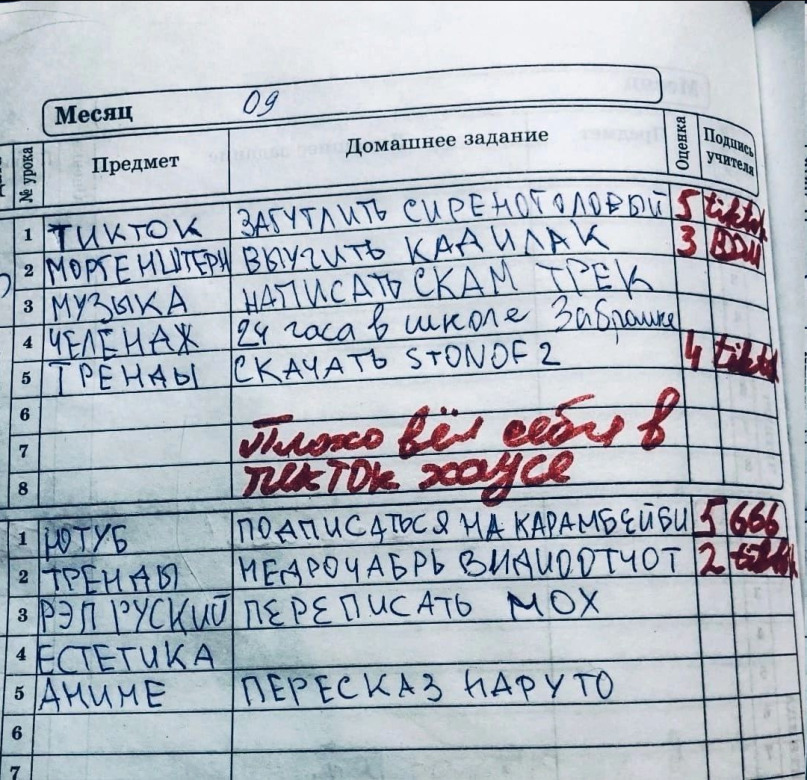 Месяц 09
№ урока Предмет Домашнее задание Оценка Подпись учителя
1 ТИКТОК ЗАГУГЛИТЬ СИРЕНОГОЛОВЫЙ 5 tiktok
2 МОРГЕНШТЕРН ВЫУЧИТЬ КАДИЛАК 3
3 МУЗЫКА НАПИСАТЬ СКАМ ТРЕК
4 ЧЕЛЕНАЖ 24 часа в школе Заброшке
5 ТРЕНДЫ СКАЧАТЬ STONDF 2 4 tiktok
6
7 Плохо вёл себя в
8 тикток хаусе
1 ЮТУБ ПОДПИСАТЬСЯ НА КАРАМБЕЙБИ 5 666
2 ТРЕНДЫ НЕДРОЧАБРЬ ВИДИООТЧОТ 2 tiktok
3 РЭП РУСКИЙ ПЕРЕПИСАТЬ МОХ
4 ЕСТЕТИКА
5 АНИМЕ ПЕРЕСКАЗ НАРУТО
6
7